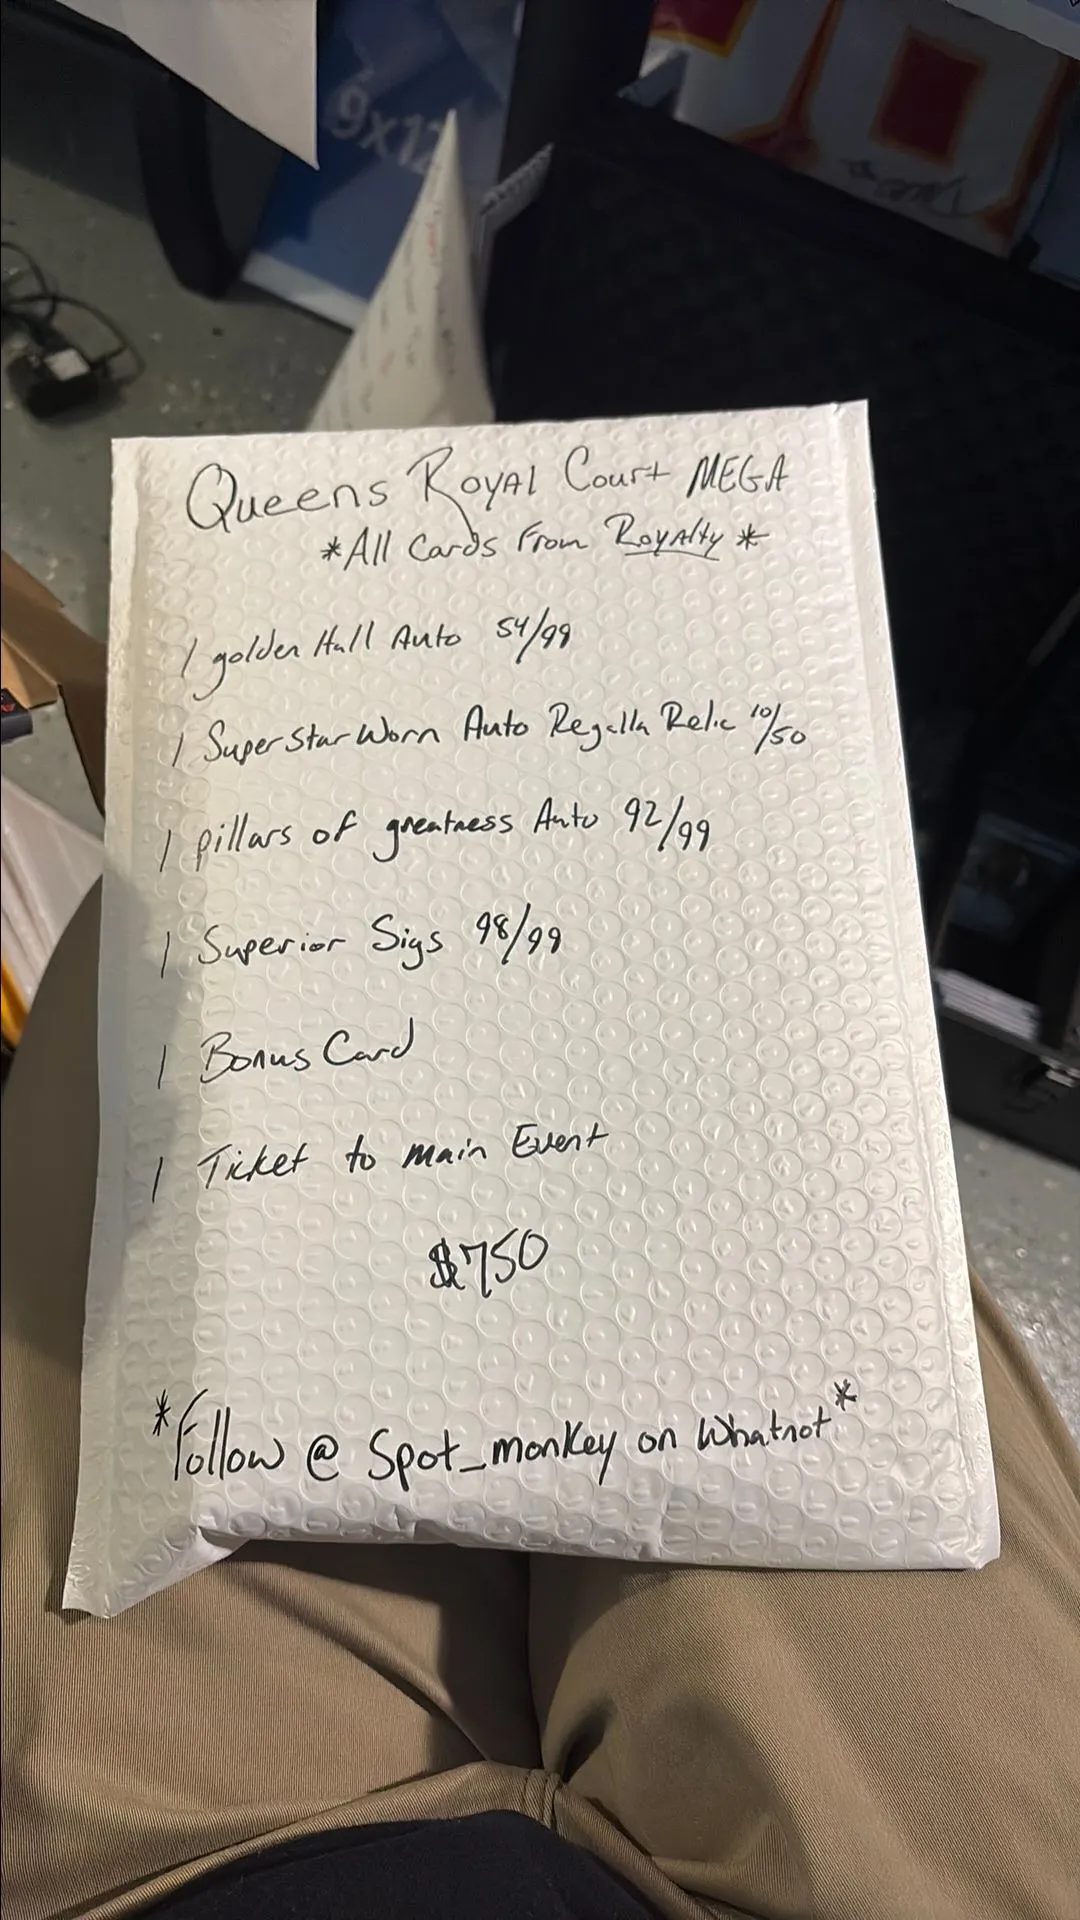 9x12
Queens Royal Court MEGA
*All Cards From Royalty*
1 golden Hall Auto 54/99
1 Superstar Worn Auto Regalla Relic 10/50
1 pillars of greatness Auto 92/99
1 Superior Sigs 98/99
1 Bonus Card
1 Ticket to main Event
$750
*Follow @ Spot_monkey on Whatnot*